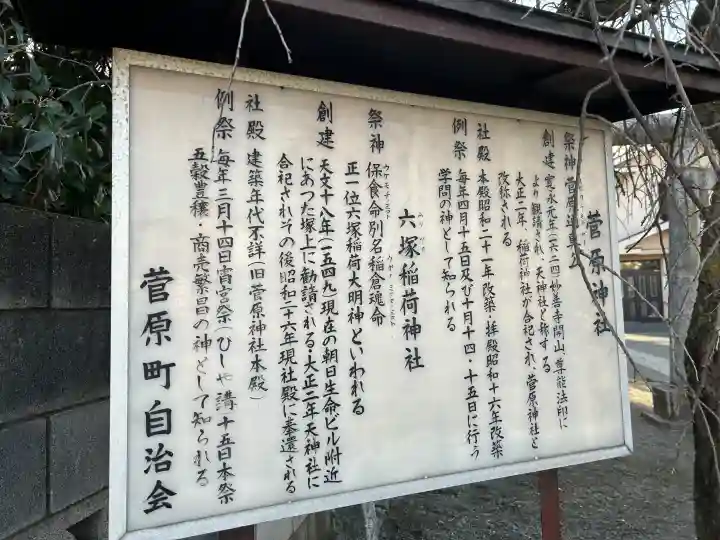 菅原神社
祭神 菅原道真公
創建 寛永元年(一六二四)妙善寺開山、尊能法印に
より観請され、天神社と称する
大正二年、稲荷神社が合記され、菅原神社と
改称される
社殿 本殿昭和二十一年改築・拝殿昭和十六年改築
例祭 毎年四月十五日及び十月十四・十五日に行う
学問の神として知られる
六塚稲荷神社
祭神 保食命別名稲倉魂命
正一位六塚稲荷大明神といわれる
創建 天文十八年(一五四九)現在の朝日生命ビル附近
にあつた塚上に勧請される・大正二年天神社に
合記されその後昭和二十六年現社殿に奉遷される
社殿 建築年代不詳(旧菅原神社本殿)
例祭 毎年三月十四日宵宮祭(ひしゃ講十五日本祭
五穀豊穣・商売繁昌の神として知られる
菅原町自治会